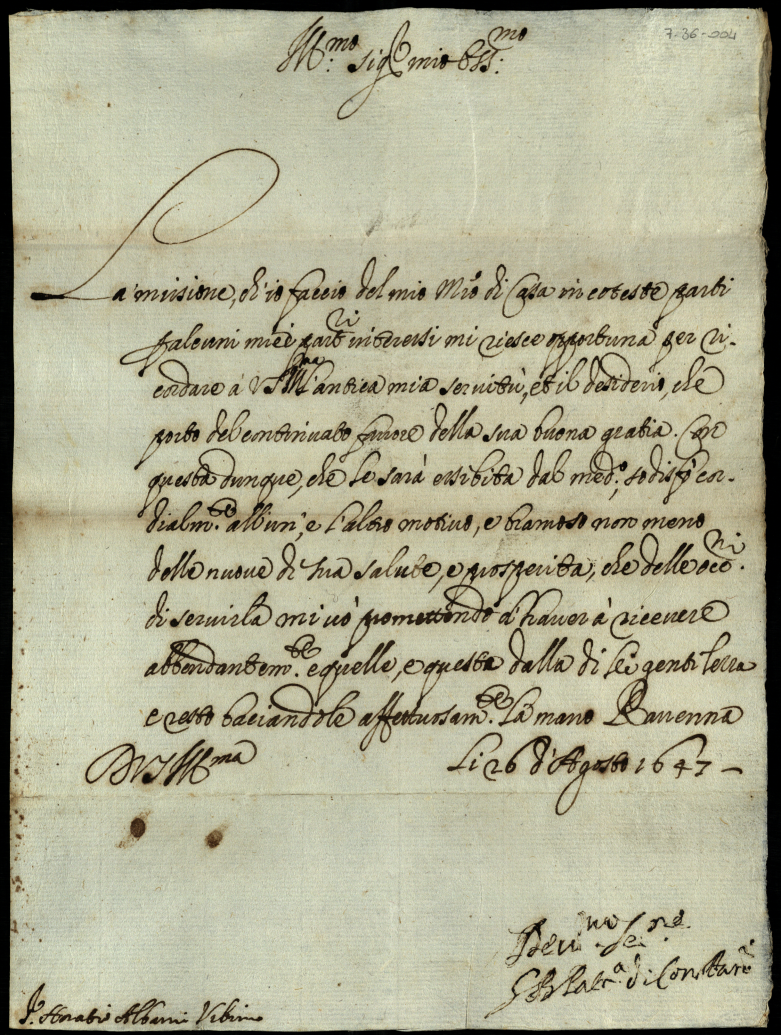 7-36-004
Ill.mo sig.r mio oss.mo
La missione, ch'io faccio del mio M.ro di Casa in coteste parti
p alcuni miei part.ri interessi mi riesce opportuna per ri-
cordare à VS Ill.ma l'antica mia servitù, et il desiderio, che
porto del continuato favore della sua buona gratia. Con
questa dunque, che le sarà essibita dal med.o, sodisfo cor-
dialm.te all'un', e l'altro motivo, e bramoso non meno
delle nuove di sua salute, e prosperita, che delle occ.ni
di servirla mi vò promettendo d'haver à ricevere
abbondantem.te e quelle, e queste dalla di lei gentilezza
e resto baciandole affettuosam.te la mano Ravenna
Li 26 d'Agosto 1647 –
D VS Ill.ma
Dev.mo Se.re
di Constan.
S.r Horatio Albani Urbino